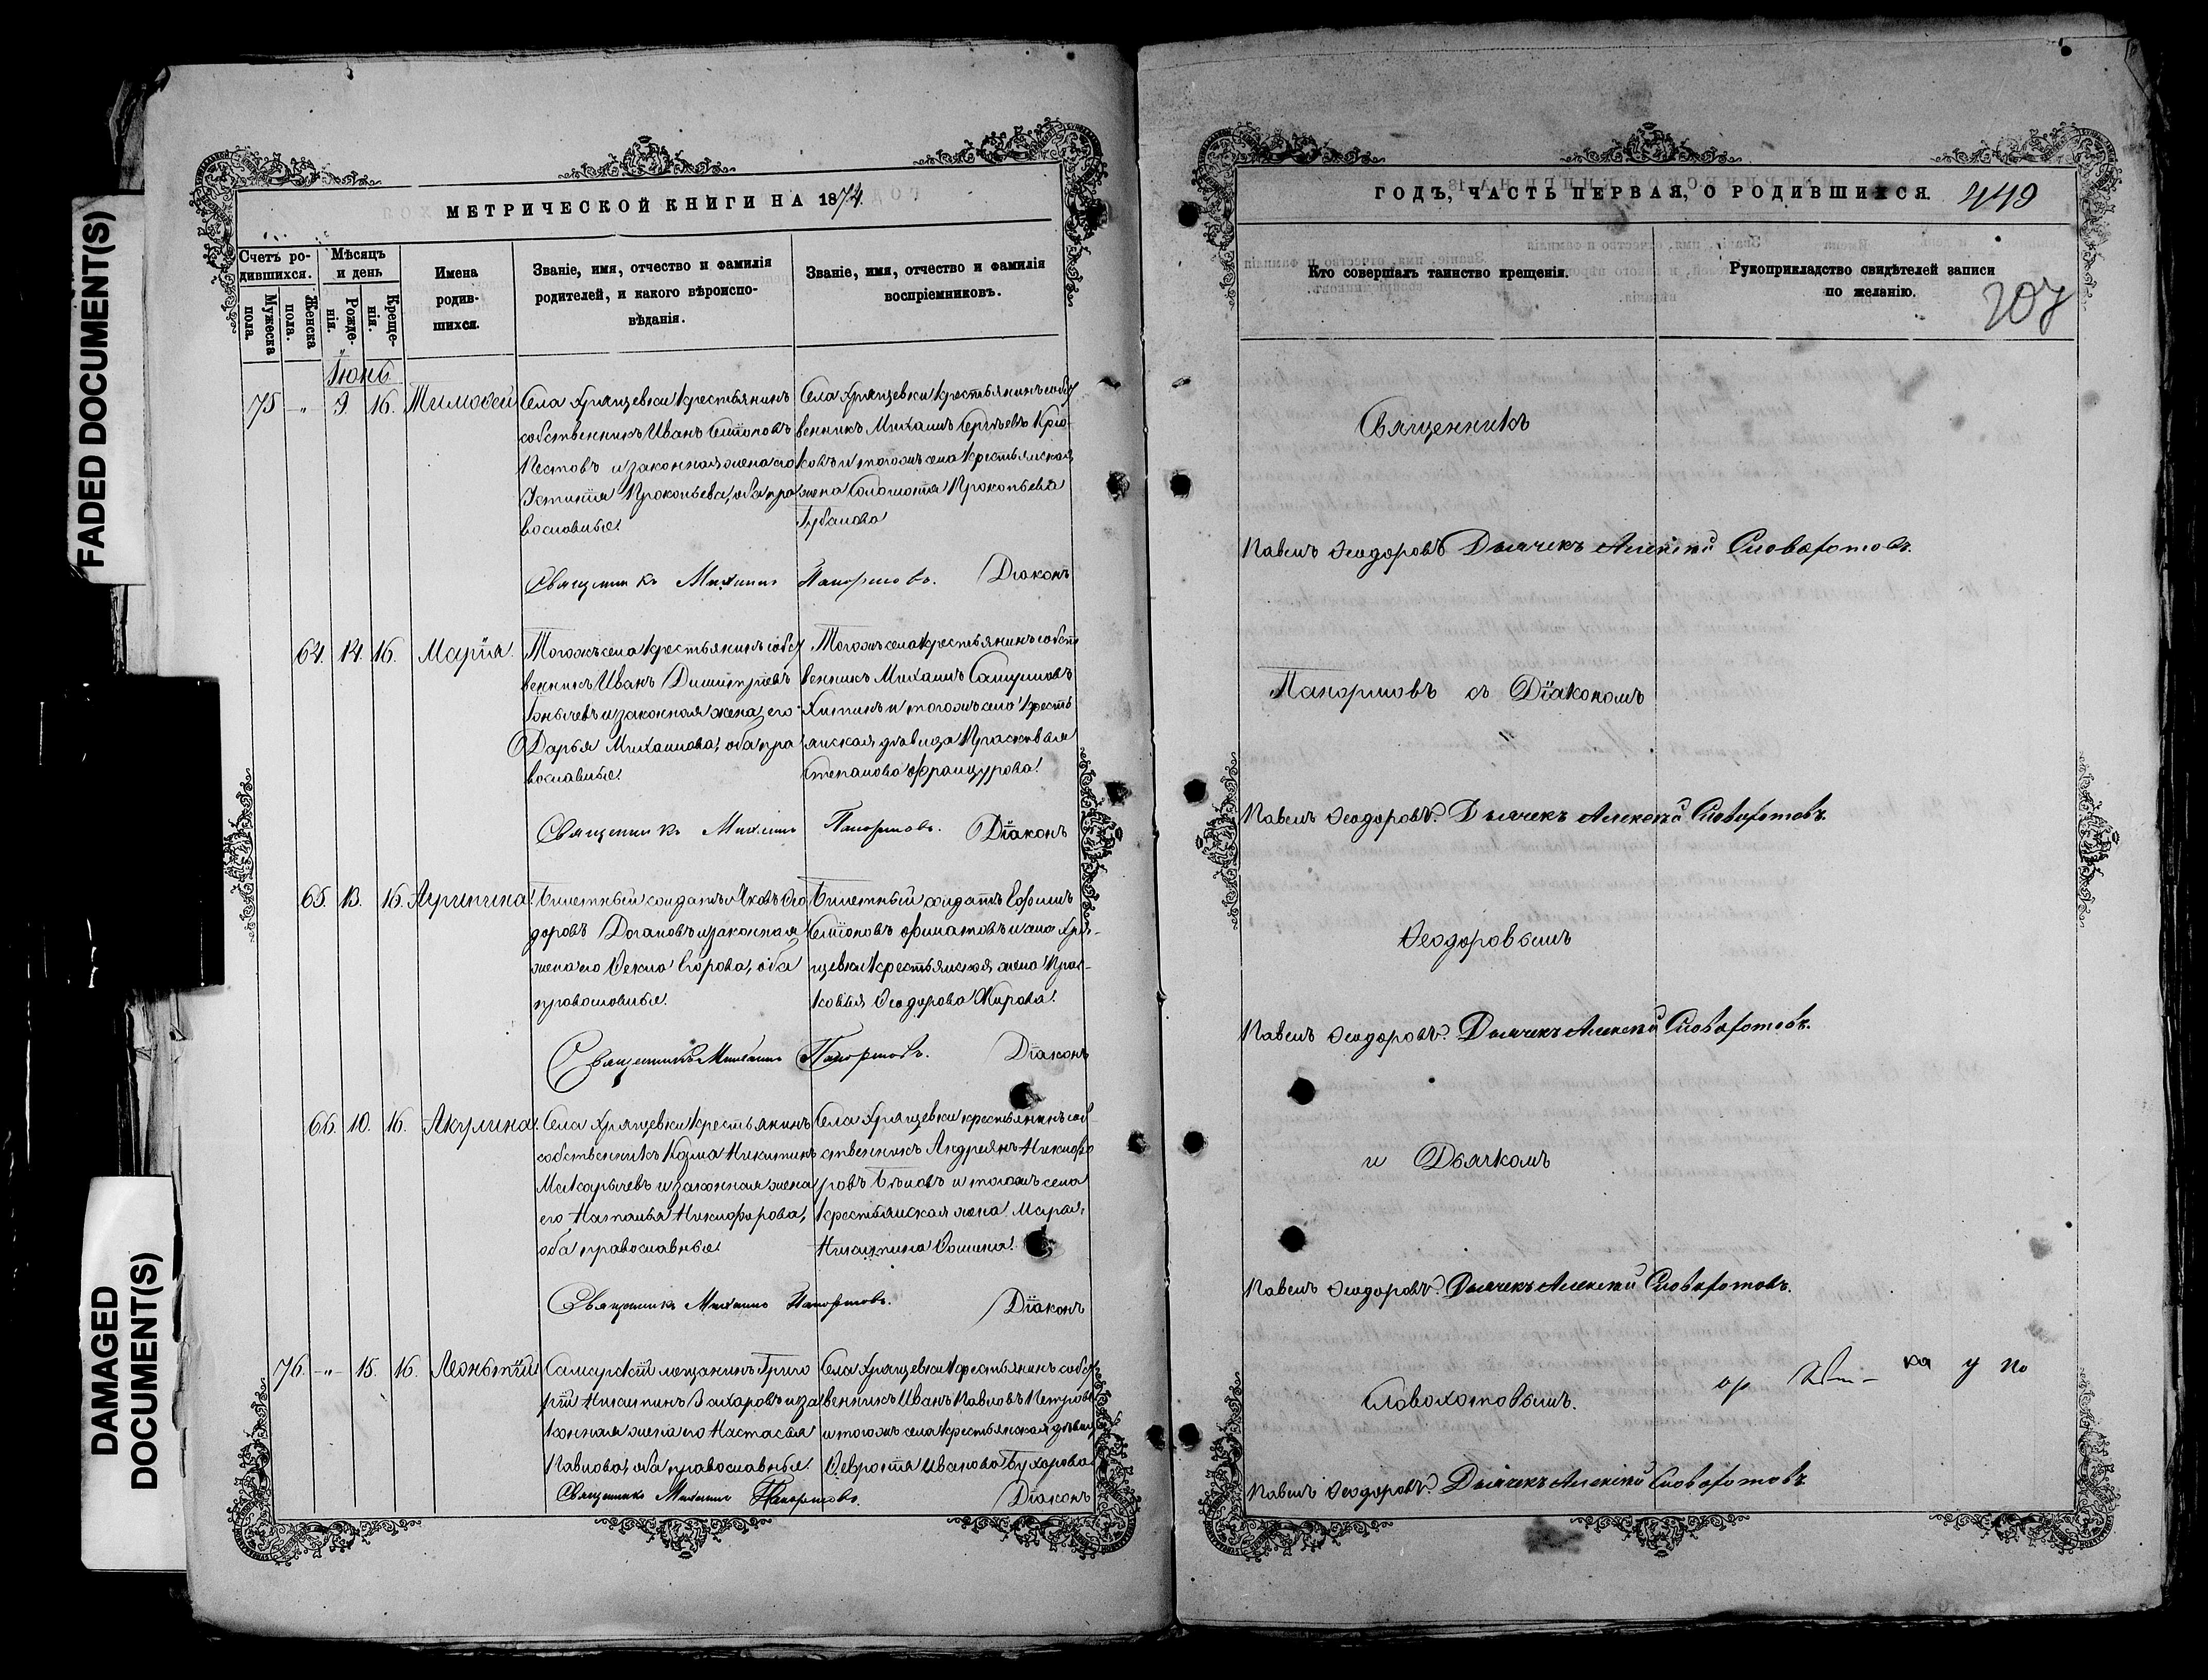 FADED DOCUMENT(S)
DAMAGED
DOCUMENT(S)
МЕТРИЧЕСКОЙ КНИГИ НА 1874.
Счетъ ро-
дившихся.
Мужеска
пола.
Женска
пола.
Мѣсяцъ
и день
Рожде-
нія.
Креще-
нія.
Имена
родив-
шихся.
Званіе, имя, отчество и фамилія
родителей, и какого вѣроиспо-
вѣданія.
Званіе, имя, отчество и фамилія
воспріемниковъ.
Іюнь
75 -„- 9. 16. Тимофей
Села Хрящевки крестьянинъ
собственникъ Иванъ
Пестовъ и законная жена его
Устинія Прокопьева, оба пра
вославные.
Села Хрящевки крестьянинъ собст
венникъ Михаилъ Сергѣевъ Крю
ковъ и тогожъ села крестьянская
жена Соломонія Прокопьева
Губанова
Священникъ Михаилъ Панормовъ. Діаконъ
64. 14. 16. Марія.
Тогожъ села крестьянинъ собст
венникъ Иванъ Димитріевъ
и законная жена его
Дарья Михаилова, оба пра
вославные.
Тогожъ села крестьянинъ собств
венникъ Михаилъ
и тогожъ села кресть
янская дѣвица Прасковья
Степанова
Священникъ Михаилъ Панормовъ. Діаконъ
65. 13. 16. Агрипина.
Билетный солдатъ Яковъ Ѳео
доровъ и законная
жена его Ѳекла Егорова, оба
православные.
Билетный солдатъ Ефимъ
Филатовъ и села Хря-
щевки крестьянская жена Прас-
ковья Ѳеодорова Жирова.
Священникъ Михаилъ Панормовъ. Діаконъ
66. 10. 16. Акулина.
Села Хрящевки крестьянинъ
собственникъ Козма Никитинъ
Макарычевъ и законная жена
его Наталья Никифорова,
оба православные.
Села Хрящевки крестьянинъ соб-
ственникъ Андреянъ Никифо
ровъ Бѣловъ и тогожъ села
крестьянская жена Марья
Никитина Фомина.
Священникъ Михаилъ Панормовъ. Діаконъ
76. -„- 15. 16. Леонтій
Самарскій мѣщанинъ Григо
рій Никитинъ Захаровъ и за
конная жена его Настасья
Павлова, оба православные.
Села Хрящевки крестьянинъ собст
венникъ Иванъ Павловъ Петровъ
и тогожъ села крестьянская дѣвица
Ѳевронія Иванова Бухарова
Священникъ Михаилъ Панормовъ. Діаконъ
ГОДЪ, ЧАСТЬ ПЕРВАЯ, О РОДИВШИХСЯ. 449
Кто совершалъ таинство крещенія.
Рукоприкладство свидѣтелей записи
по желанію.
207
Священникъ
Павелъ Ѳеодоровъ Дьячекъ Алексѣй Словохотовъ.
Панормовъ съ Діакономъ
Павелъ Ѳеодоровъ. Дьячекъ Алексѣй Словохотовъ.
Ѳеодоровымъ
Павелъ Ѳеодоровъ. Дьячекъ Алексѣй Словохотовъ.
и Дьячкомъ
Павелъ Ѳеодоровъ. Дьячекъ Алексѣй Словохотовъ.
Словохотовымъ.
Павелъ Ѳеодоровъ. Дьячекъ Алексѣй Словохотовъ